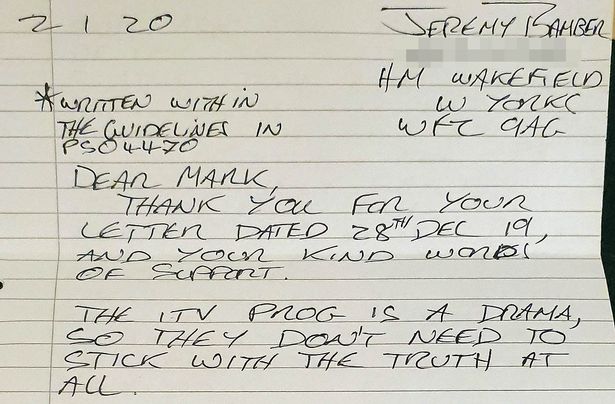 2 1 20
JEREMY BAMBER
HM WAKEFIELD
W YORKS
WF2 9AG
*WRITTEN WITHIN
THE GUIDELINES IN
PSO 4470
DEAR MARK,
THANK YOU FOR YOUR
LETTER DATED 28TH DEC 19,
AND YOUR KIND WORDS
OF SUPPORT.
THE ITV PROG IS A DRAMA,
SO THEY DON'T NEED TO
STICK WITH THE TRUTH AT
ALL.